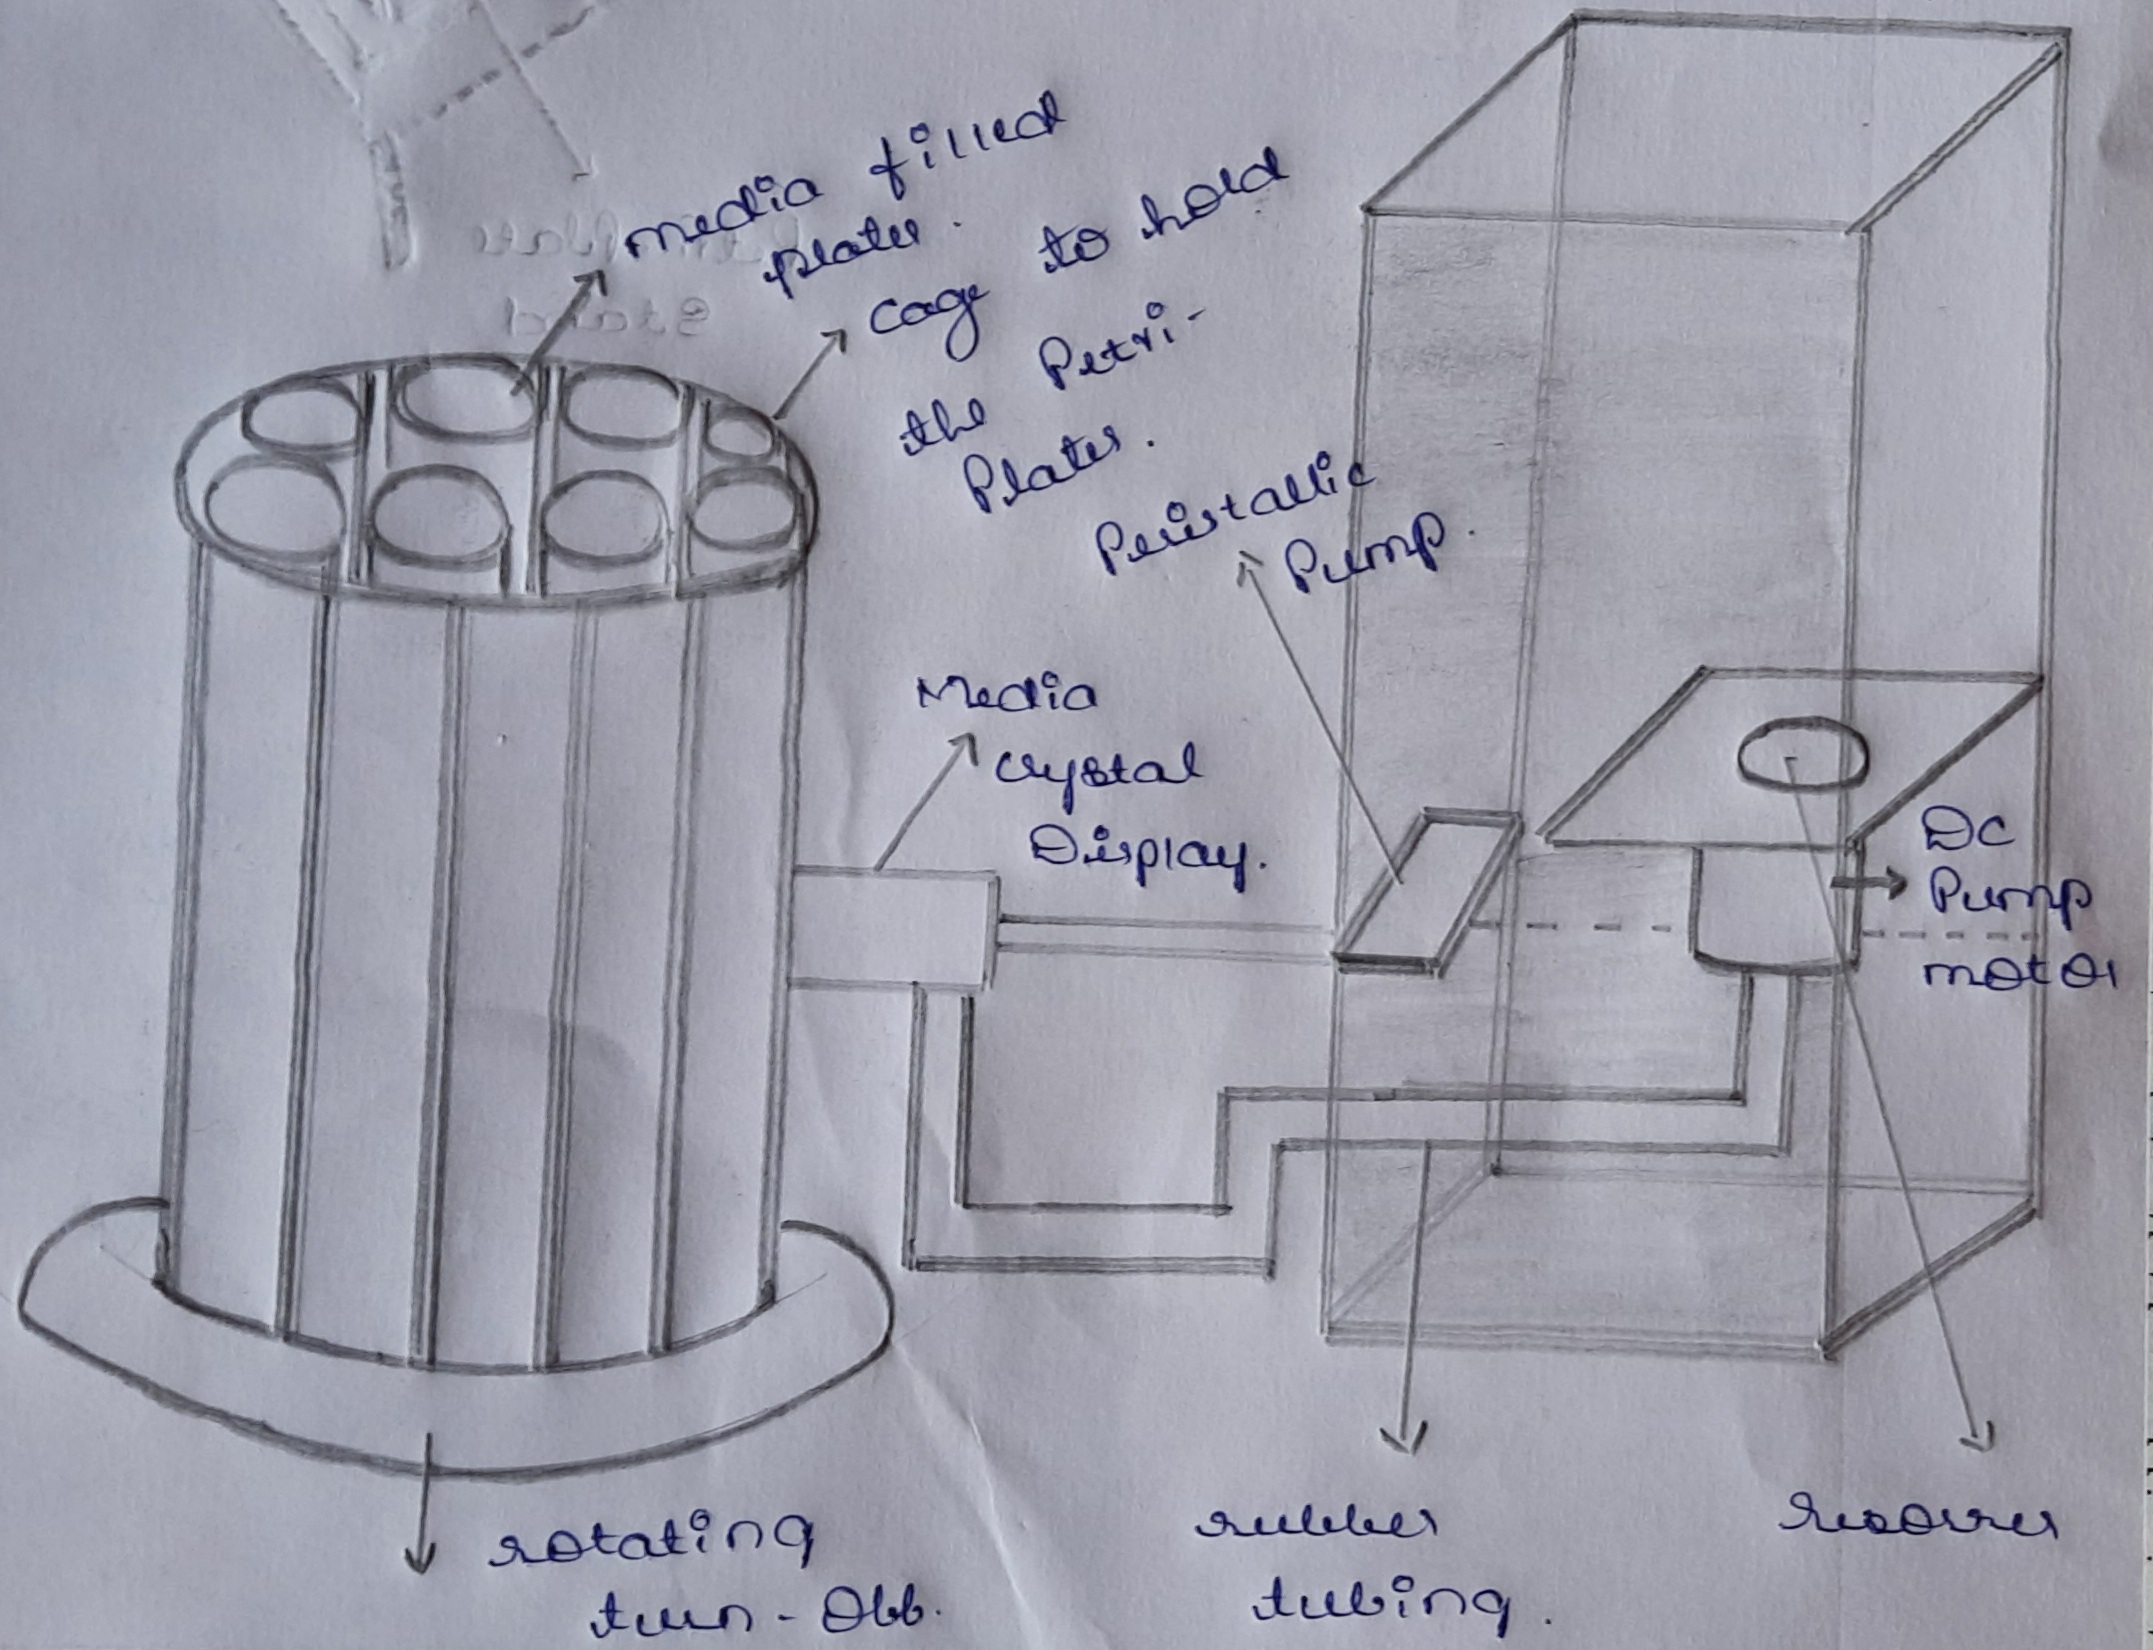 media filled
plates.
cage to hold
the Petri-
Plates.
Peristallic
Pump.
Media
crystal
Display.
DC
Pump
motor
rotating
turn-Obb.
rubber
tubing.